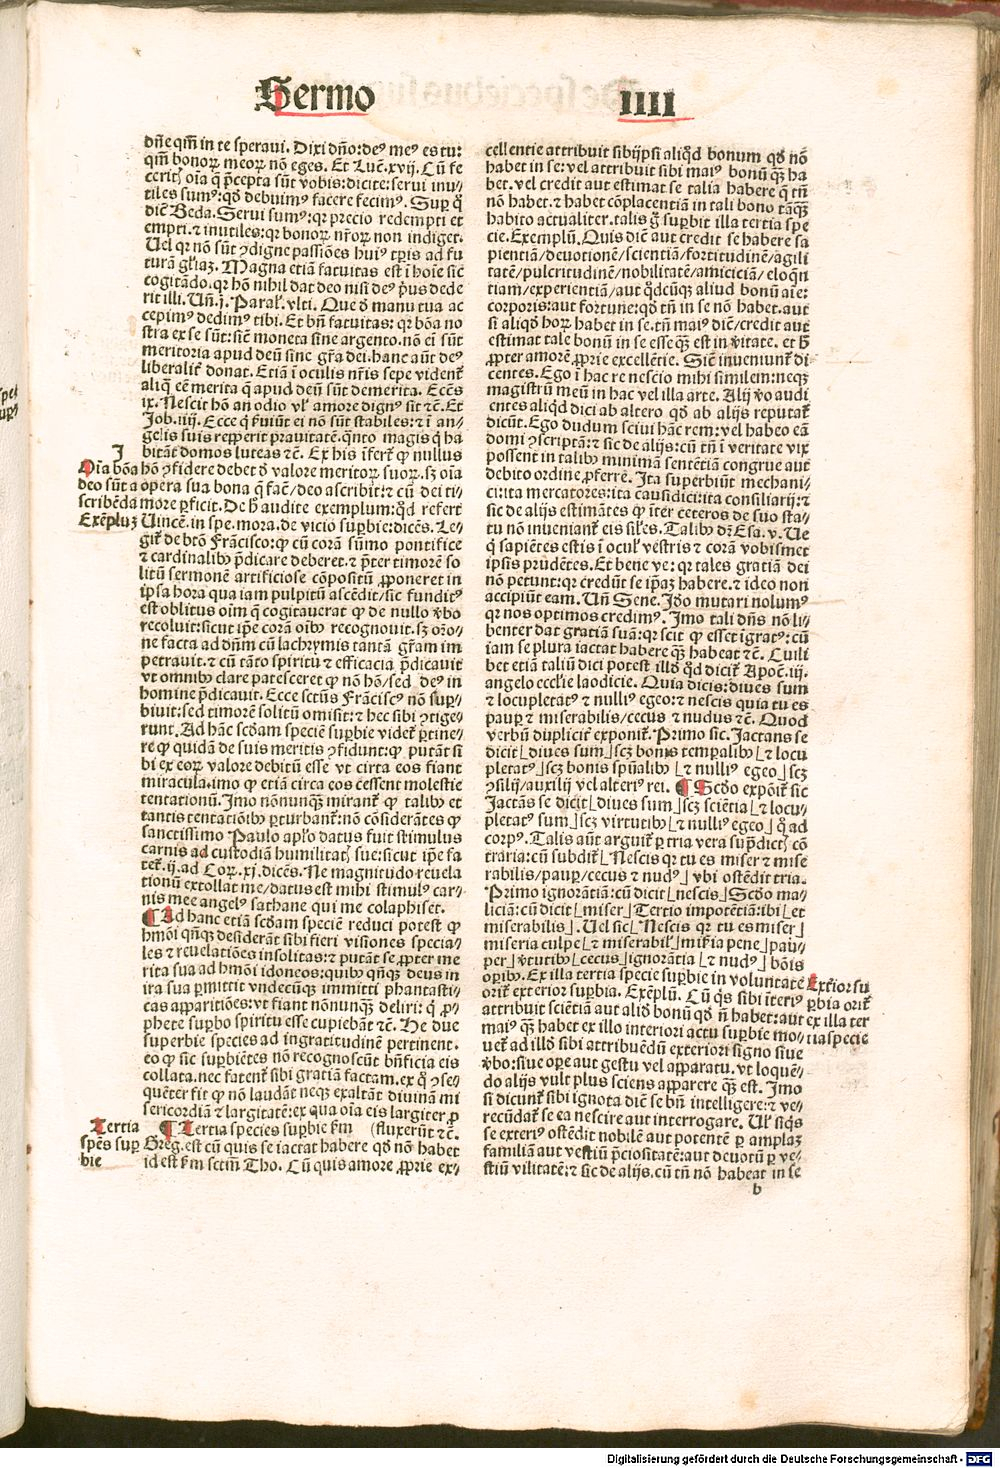 Sermo IIII
dñe qm̃ in te speraui. Dixi dño: deꝰ meꝰ es tu:
qm̃ bonoꝝ meoꝝ nõ eges. Et Luc̃. xvij. Cũ fe
ceritꝭ oĩa q̃ p̃cepta sũt vobis: dicite: serui inu/
tiles sumꝰ: qđ debuimꝰ facere fecimꝰ. Suꝑ q̃
dic̃ Beda. Serui sumꝰ: qꝛ precio redempti et
empti. ⁊ inutiles: qꝛ bonoꝝ nr̃oꝝ non indiget.
Uel qꝛ nõ sũt ↄdigne passiões huiꝰ tꝑis ad fu
turã gl̃iaꝫ. Magna etiã fatuitas est ĩ hoĩe sic̃
cogitãdo. qꝛ hõ nihil dat deo nisi deꝰ pꝰus dede
rit illi. Uñ. j. Paral̓. vlti. Que đ manu tua ac
cepimꝰ dedimꝰ tibi. Et bñ fatuitas: qꝛ bõa no
stra ex se sũt: sic̃ moneta sine argento. nõ em̃ sũt
meritoria apud deũ sine gr̃a dei. hanc aũt deꝰ
liberalit̃ donat. Etiã ĩ oculis nr̃is sepe vident̃
aliq̃ eẽ merita q̃ apud deũ sũt demerita. Ecc̃s
ix. Nescit hõ an odio vl̓ amore dignꝰ sit ⁊c̃. Et
Job. iiij. Ecce q̃ ẜuiũt ei nõ sũt stabiles: ⁊ ĩ an/
gelis suis repperit prauitatẽ. q̃nto magis q̃ ha
bitãt domos luteas ⁊c̃. Ex his ĩfert̃ ꝙ nullus
hõ ↄfidere debet đ valore meritoꝝ suoꝝ. sꝫ oĩa
opera sua bona q̃ fac̃/deo ascribit: ⁊ cũ dei ti/
more ꝑficit. De h̓ audite exemplum: qđ refert
Uinceñ. in spe. mora. de vicio suꝑbie: dicẽs. Le/
git̃ de btõ Frãcisco: ꝙ cũ corã sũmo pontifice
⁊ cardinalibꝰ p̃dicare deberet. ⁊ p̃ter timorẽ so
litũ sermonẽ artificiose cõpositũ ꝓponeret in
ipsa hora qua iam pulpitũ ascẽdit/sic funditꝰ
est oblitus oĩm q̃ cogitauerat ꝙ de nullo ṽbo
recoluit: sicut ip̃e corã oĩbꝰ recognouit. sꝫ orõ/
ne facta ad dñm cũ lachrymis tantã gr̃am im
petrauit. ⁊ cũ tãto spiritu ⁊ efficacia p̃dicauit
vt omnibꝰ clare patesceret ꝙ nõ hõ/sed deꝰ in
homine p̃dicauit. Ecce sctũs Frãciscꝰ nõ suꝑ/
biuit: sed timorẽ solitũ omisit: ⁊ hec sibi ↄtige/
runt. Ad hãc scđam speciẽ suꝑbie videt̃ ꝑtine/
re q̃ quidã de suis meritis ↄfidunt: ꝙ putãt si
bi ex eoꝝ valore debitũ esse vt circa eos fiant
miracula. imo ꝙ etiã circa eos cessent molestie
tentationũ. Imo nõnunqꝫ mirant̃ ꝙ talibꝰ et
tantis tentatiõibꝰ ꝑturbant̃: nõ cõsiderãtes ꝙ
sanctissimo Paulo apl̓o datus fuit stimulus
carnis ad custodiã humilitatꝭ sue: sicut ip̃e fa
tet̃. ij. ad Coꝝ. xj. dicẽs. Ne magnitudo reuela
tionũ extollat me/datus est mihi stimulꝰ car/
nis mee angelꝰ sathane qui me colaphiset.
¶ Ad hanc etiã scđam speciẽ reduci potest ꝙ
hmõi qñqꝫ desiderãt sibi fieri visiones specia/
les ⁊ reuelatiões insolitas: ⁊ putãt se ꝓpter me
rita sua ad hmõi idoneos: quibꝰ qñqꝫ deus in
ira sua ꝑmittit vndecũqꝫ immitti phantasti/
cas apparitiões: vt fiant nõnunqꝫ deliri: q̃ ꝓ/
phete suꝑbo spiritu esse cupiebãt ⁊c̃. He due
superbie species ad ingratitudinẽ pertinent.
eo ꝙ sic suꝑbiẽtes nõ recognoscũt bñficia eis
collata. nec fatent̃ sibi gratiã factam. ex q̃ ↄse/
quẽter fit ꝙ nõ laudãt neqꝫ exaltãt diuinã mi
sericordiã ⁊ largitatẽ: ex qua oĩa eis largiter ꝓ
¶ Tertia species suꝑbie ẜm (fluxerũt ⁊c̃.
Greg̃. est cũ quis se iactat habere qđ nõ habet
id est ẜm sctm̃ Tho. Cũ quis amore ꝓprie ex/
J
Oĩa bõa
deo sũt a
scribẽda
Exẽpluꝫ
Tertia
spẽs suꝑ
bie
cellentie attribuit sibijpsi aliqđ bonum qđ nõ
habet in se: vel attribuit sibi maiꝰ bonũ qꝫ ha
bet. vel credit aut estimat se talia habere q̃ tñ
nõ habet. ⁊ habet cõplacentiã in tali bono tãqꝫ
habito actualiter. talis g̃ suꝑbit illa tertia spe
cie. Exemplũ. Quis dic̃ aut credit se habere sa
pientiã/deuotionẽ/scientiã/fortitudinẽ/agili
tatẽ/pulcritudinẽ/nobilitatẽ/amiciciã/eloq̃n
tiam/experientiã/aut qđcũqꝫ aliud bonũ aĩe:
corporis: aut fortune: qđ tñ in se nõ habet. aut
si aliqđ hoꝝ habet in se. tñ maiꝰ dic̃/credit aut
estimat tale bonũ in se esse qꝫ est in ṽitate. et h̓
ꝓpter amorẽ ꝓprie excellẽtie. Sic̃ inueniunt̃ di
centes. Ego ĩ hac re nescio mihi similem: neqꝫ
magistrũ meũ in hac vel illa arte. Alij ṽo audi
entes aliqđ dici ab altero qđ ab alijs reputat̃
dicũt. Ego dudum sciui hãc rem: vel habeo eã
domi ↄscriptã: ⁊ sic de alijs: cũ tñ ĩ veritate vix
possent in talibꝰ minimã sentẽtiã congrue aut
debito ordine ꝓferre. Ita superbiũt mechani/
ci: ita mercatores: ita causidici: ita consiliarij: ⁊
sic de alijs estimãtes ꝙ ĩter ceteros de suo sta/
tu nõ inueniant̃ eis sil̓es. Talibꝰ dr̃ Esa. v. Ue
q̃ sapiẽtes estis ĩ ocul̓ vestris ⁊ corã vobismet
ipsis prudẽtes. Et bene ve: qꝛ tales gratiã dei
nõ petunt: qꝛ credũt se ip̃aꝫ habere. ⁊ ideo non
accipiũt eam. Uñ Sene. Iđo mutari nolumꝰ
qꝛ nos optimos credimꝰ. Imo tali dñs nõ li/
benter dat gratiã suã: qꝛ scit ꝙ esset ĩgratꝰ: cũ
iam se plura iactat habere qꝫ habeat ⁊c̃. Cuili
bet etiã taliũ dici potest illđ qđ dicit̃ Apoc̃. iij.
angelo eccl̓ie laodicie. Quia dicis: diues sum
⁊ locupletatꝰ ⁊ nulliꝰ egeo: ⁊ nescis quia tu es
pauꝑ ⁊ miserabilis/cecus ⁊ nudus ⁊c̃. Quod
verbũ dupliciť exponit̃. Primo sic. Jactans se
dicit ⌊diues sum⌋ scꝫ bonis tempalibꝰ ⌊⁊ locu
pletatꝰ⌋ scꝫ bonis spũalibꝰ ⌊⁊ nulliꝰ egeo⌋ scꝫ
ↄsilij/auxilij vel alteriꝰ rei. ¶ Scđo expõit̃ sic
Jactãs se dicit ⌊diues sum⌋ scꝫ sciẽtia ⌊⁊ locu/
pletatꝰ sum⌋ scꝫ virtutibꝰ ⌊⁊ nulliꝰ egeo⌋ q̃ ad
corpꝰ. Talis aũt arguit̃ ꝑ tria vera sup̃dictꝭ cõ
traria: cũ subdit̃ ⌊Nescis qꝛ tu es miser ⁊ mise
rabilis/pauꝑ/cecus ⁊ nudꝰ⌋ vbi ostẽdit tria.
Primo ignorãtiã: cũ dicit ⌊nescis⌋ Scđo ma/
liciã: cũ dicit ⌊miser⌋ Tertio impotẽtiã: ibi ⌊et
miserabilis⌋. Uel sic ⌊Nescis qꝛ tu es miser⌋
miseria culpe ⌊⁊ miserabil̓⌋ mĩẜia pene ⌊pau/
per⌋ ṽtutibꝰ ⌊cecus⌋ ignorãtia ⌊⁊ nudꝰ⌋ bõis
oꝑibꝰ. Ex illa tertia specie suꝑbie in voluntatẽ
orit̃ exterior suꝑbia. Exẽplũ. Cũ q̃s sibi ĩteriꝰ
attribuit sciẽtiã aut aliđ bonũ qđ ñ habet: aut
maiꝰ qꝫ habet ex illo interiori actu suꝑbie mo/
uet̃ ad illđ sibi attribuẽdũ exteriori signo siue
ṽbo: siue oꝑe aut gestu vel apparatu. vt loquẽ/
do alijs vult plus sciens apparere qꝫ est. Imo
si dicunt̃ sibi ignota dic̃ se bñ intelligere: ⁊ ve/
recũdat̃ se ea nescire aut interrogare. Ul̓ siqꝭs
se exteriꝰ ostẽdit nobilẽ aut potentẽ ꝑ amplaꝫ
familiã aut vestiũ p̃ciositatẽ: aut deuotũ ꝑ ve/
stiũ vilitatẽ: ⁊ sic de alijs. cũ tñ nõ habeat in se
Ext̓ior su
ꝑbia orit̃
ex illa ter
tia specie
b
Digitalisierung gefördert durch die Deutsche Forschungsgemeinschaft - DFG